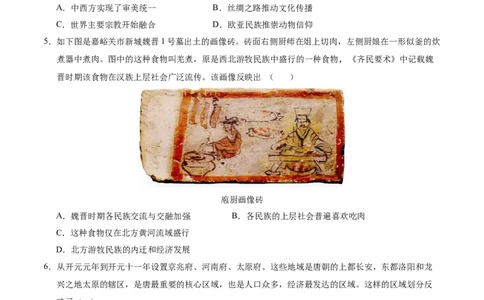 A．中西方实现了审美统一 B．丝绸之路推动文化传播
C．世界主要宗教开始融合 D．欧亚民族推崇动物信仰
5．如下图是嘉峪关市新城魏晋 1 号墓出土的画像砖。砖面右侧厨师在俎上切肉，左侧厨娘在一形似釜的炊
煮器中煮肉。图中的这种食物叫羌煮，原是西北游牧民族中盛行的一种食物，《齐民要术》中记载魏
晋时期该食物在汉族上层社会广泛流传。该画像反映出 （ ）
庖厨画像砖
A．魏晋时期各民族交流与交融加强 B．各民族的上层社会普遍喜欢吃肉
C．这种食物仅在北方黄河流域盛行
D．北方游牧民族的内迁和经济发展
6．从开元元年到开元十一年设置京兆府、河南府、太原府。这些地域是唐朝的上都长安，东都洛阳和龙
兴之地太原的辖区，是唐最重要的核心区域，也是人口众多，经济最发达的区域。这样的区域划分反